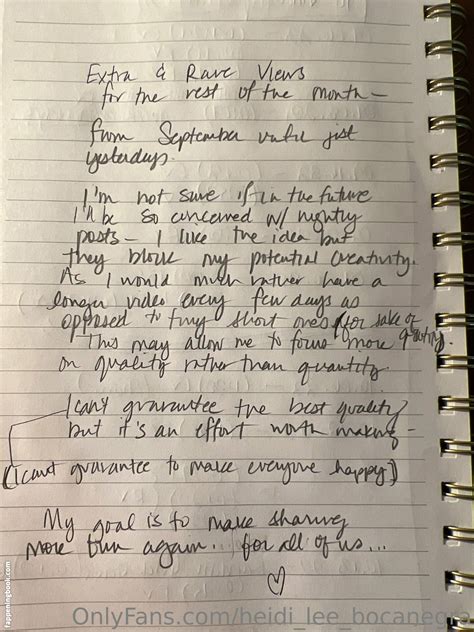 Extra & Rare Views
for the rest of the month –
from September until just
yesterday.
I'm not sure if in the future
I'll be so concerned w/ nightly
posts – I like the idea but
they block my potential creativity.
As I would much rather have a
longer video every few days as
opposed to tiny short ones for sake of
quantity.
This may allow me to focus more
on quality rather than quantity.
I can't guarantee the best quality
but it's an effort worth making –
(I cant guarantee to make everyone happy)
My goal is to make sharing
more fun again... for all of us...
OnlyFans.com/heidi_lee_bocanegra
fappeningbook.com